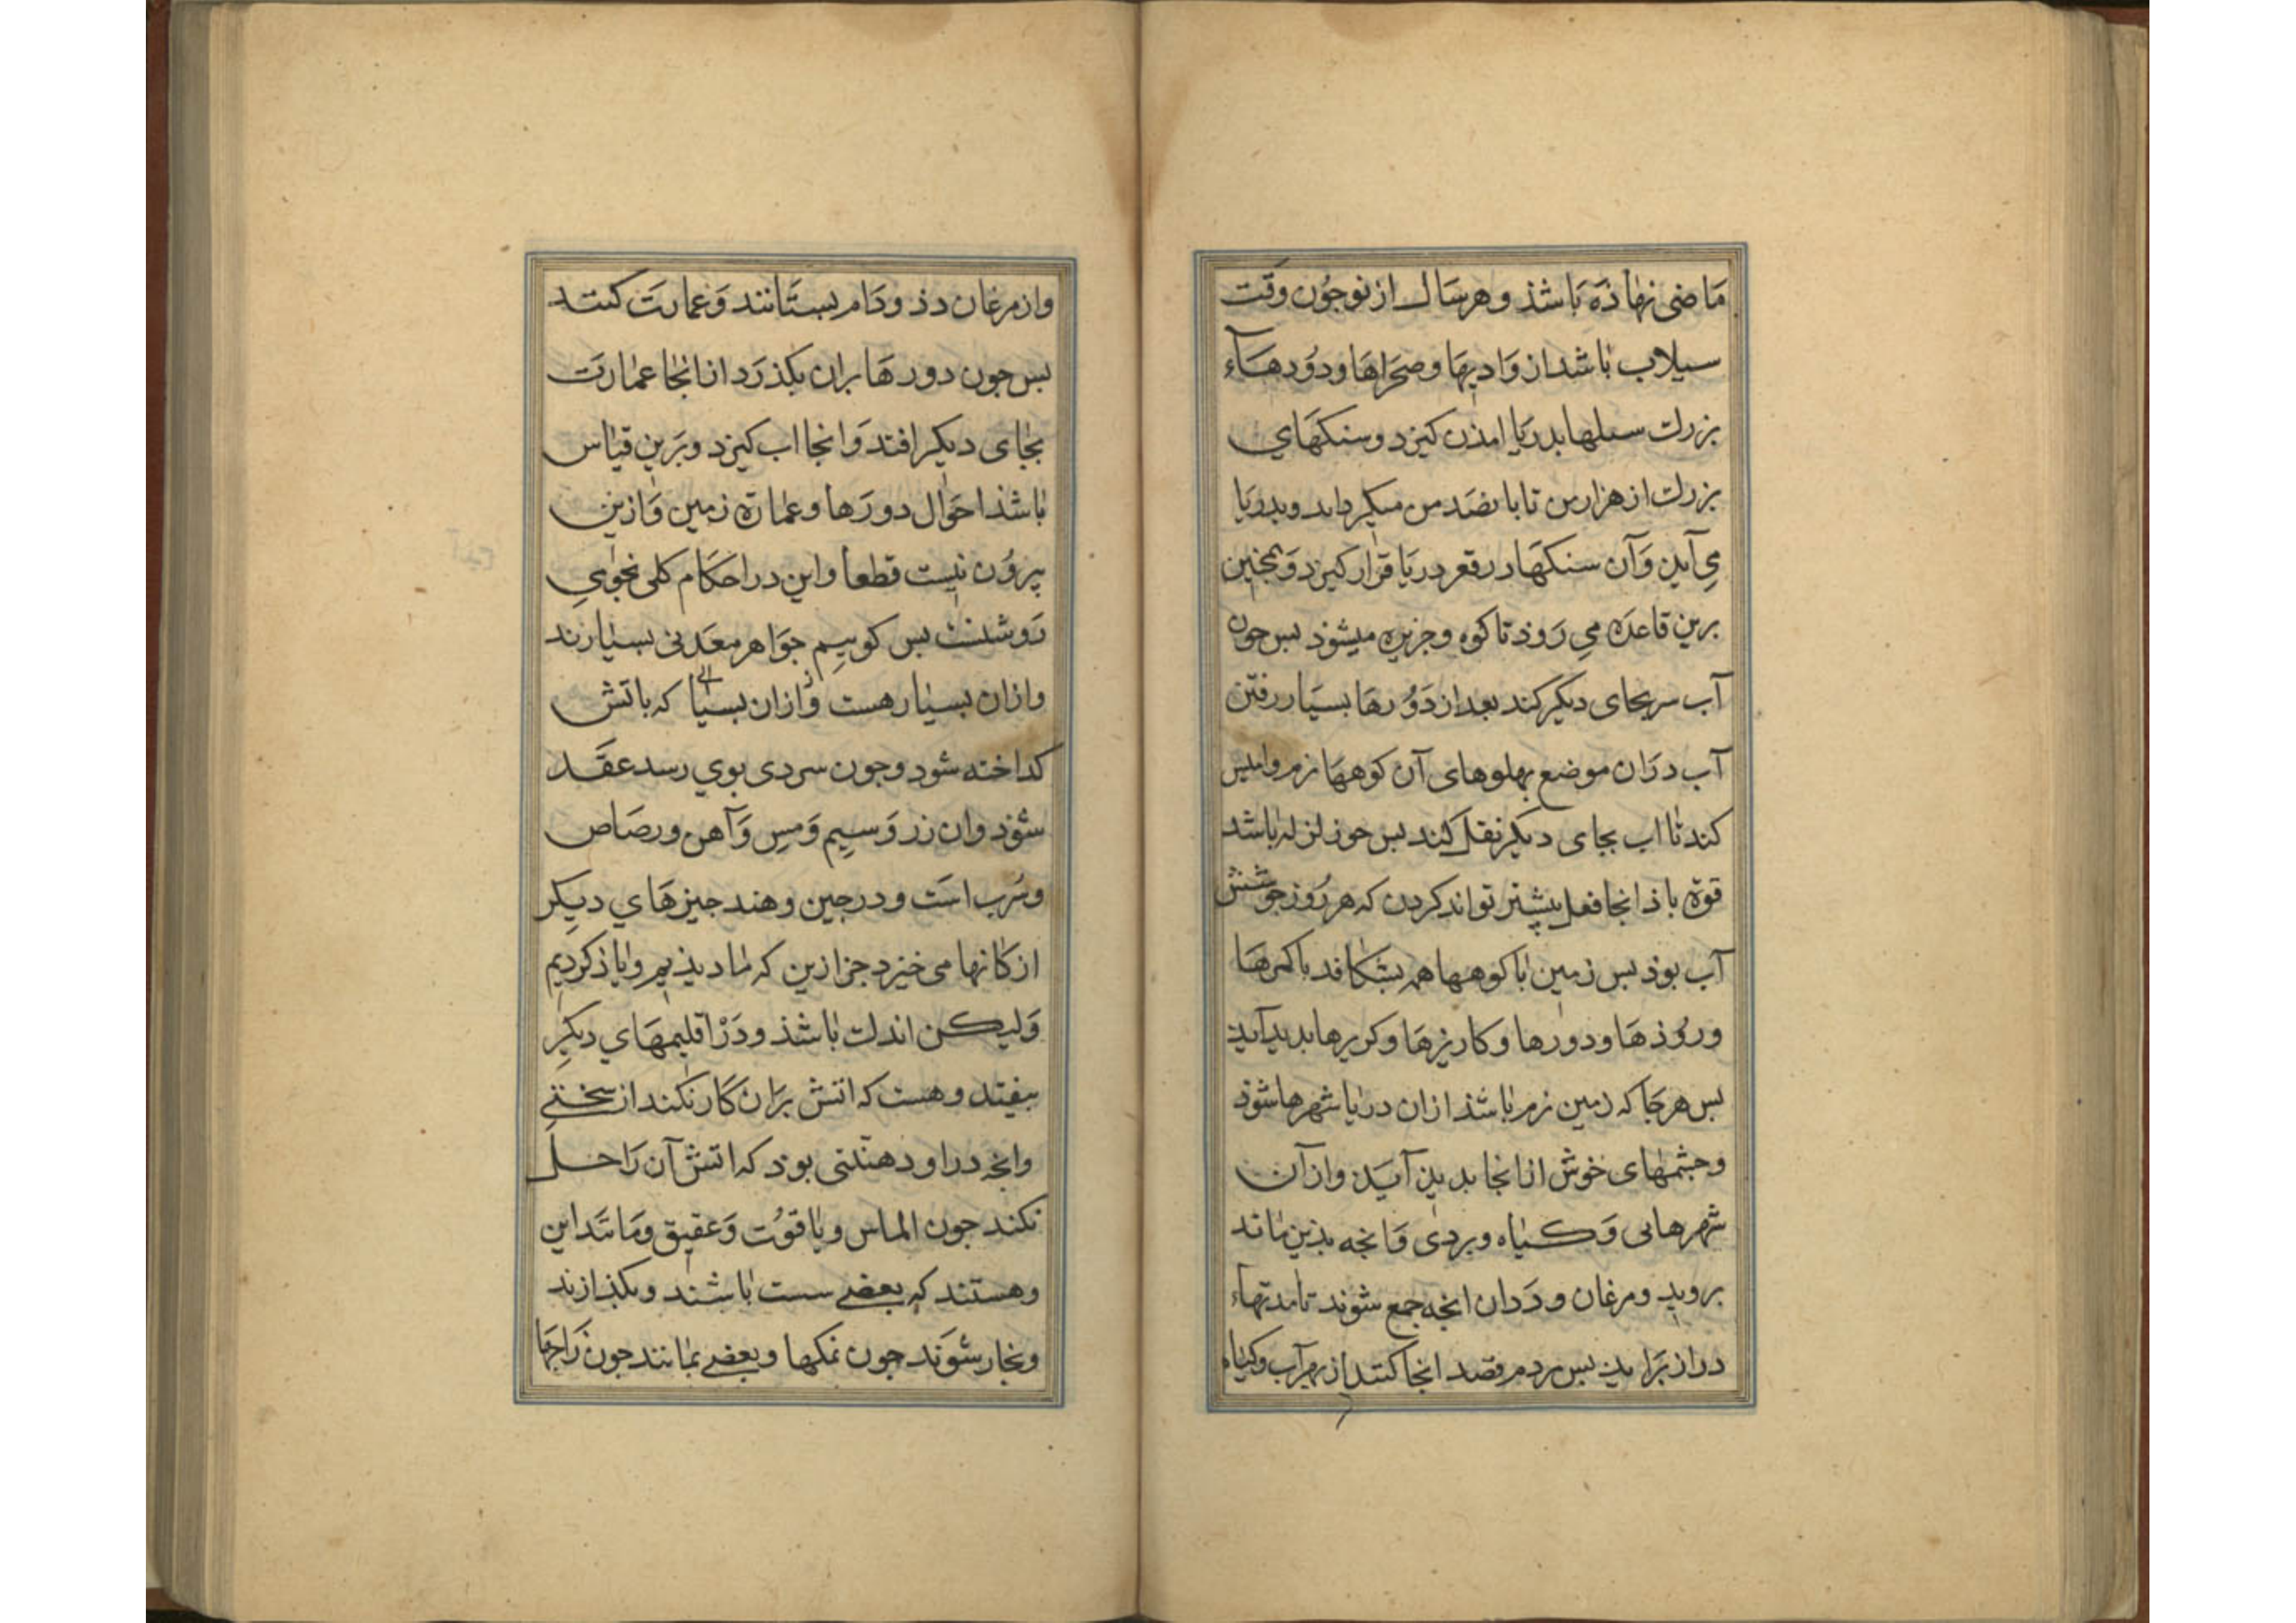 ماضی نهاذه باشذ و هر سال از نو جون وقت
سیلاب باشد از وادیها و صحراها و دورهاء
بزرك سیلها بدریا امذن کیرد و سنکهای
بزرك از هزار من تا بانصد من میکرداند و بدریا
می آید و آن سنکها در قعر دریا قرار کیرد و همجنین
برین قاعده می روذ تا کوه و جزیره میشوذ بس جون
آب سر بجای دیکر کند بعد از دورها بسیار رفتن
آب دران موضع بهلوهای آن کوهها نرم و املس
کند تا اب بجای دیکر نقل کند بس جون زلزله باشد
قوة باذ انجا فعل بیشتر تواند کردن که هر روز جوشش
آب بوذ بس زمین با کوهها هم بشکافد با کمرها
و روذها و دورها و کاریزها و بدید آید
بس هر جا که زمین نرم باشذ ازان دریا شهرها شوذ
و جشمهای خوش از انجا بدیذ آید و از آن
شهرهایی و کیاه و بردی و انجه بذین ماند
بروید و مرغان و ددان انجه جمع شوند تا مدتهاء
دراز براید بس مردم قصد انجا کنند از بهر آب و کیاه
و از مرغان دذ و دام بستانند و عمارت کنند
بس جون دورها بران بکذرد از انجا عمارت
بجای دیکر افتد و انجا اب کیرد و برین قیاس
باشذ احوال دورها و عمارة زمین و ازین
بیرون نیست قطعا و این در احکام کلی نجومی
روشنست بس کوییم جواهر معدنی بسیارند
و ازان بسیار هست و ازان بسیا که باتش
کداخته شود و جون سردی بوی رسد عقد
شوذ و ان زر و سیم و مس و آهن و رصاص
و سرب است و در جین و هند جیزهای دیکر
از کانها می خیزد جز ازین که ما دیذیم و یاذ کردیم
ولیکن اندك باشذ و در اقلیمهای دیکر
بیفتد و هست که اتش بران کار نکند از سختی
و انجه در او دهنتی بوذ که اتش آن را حل
نکند جون الماس و یاقوت و عقیق و مانند این
و هستند که بعضی سست باشند و بکذازند
و بخار شوند جون نمکها و بعضی بمانند جون زاجها